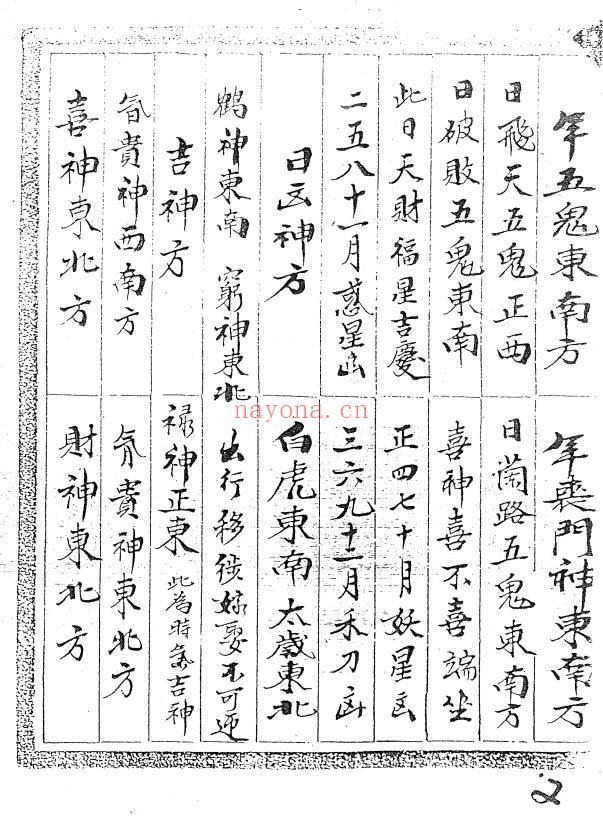 年五鬼東南方
年喪門神東南方
日飛天五鬼正西
日蘭路五鬼東南方
日破敗五鬼東南
喜神喜不喜端坐
此日天財福星吉慶
正四七十月妖星凶
二五八十一月惑星凶
三六九十二月禾刀凶
日凶神方
白虎東南 太歲東北
鶴神東南 窮神東北
出行移徙嫁娶不可
吉神方
祿神正東 此為時吉神
貴神西南方
貴神東北方
喜神東北方
財神東北方
nayona.cn
2